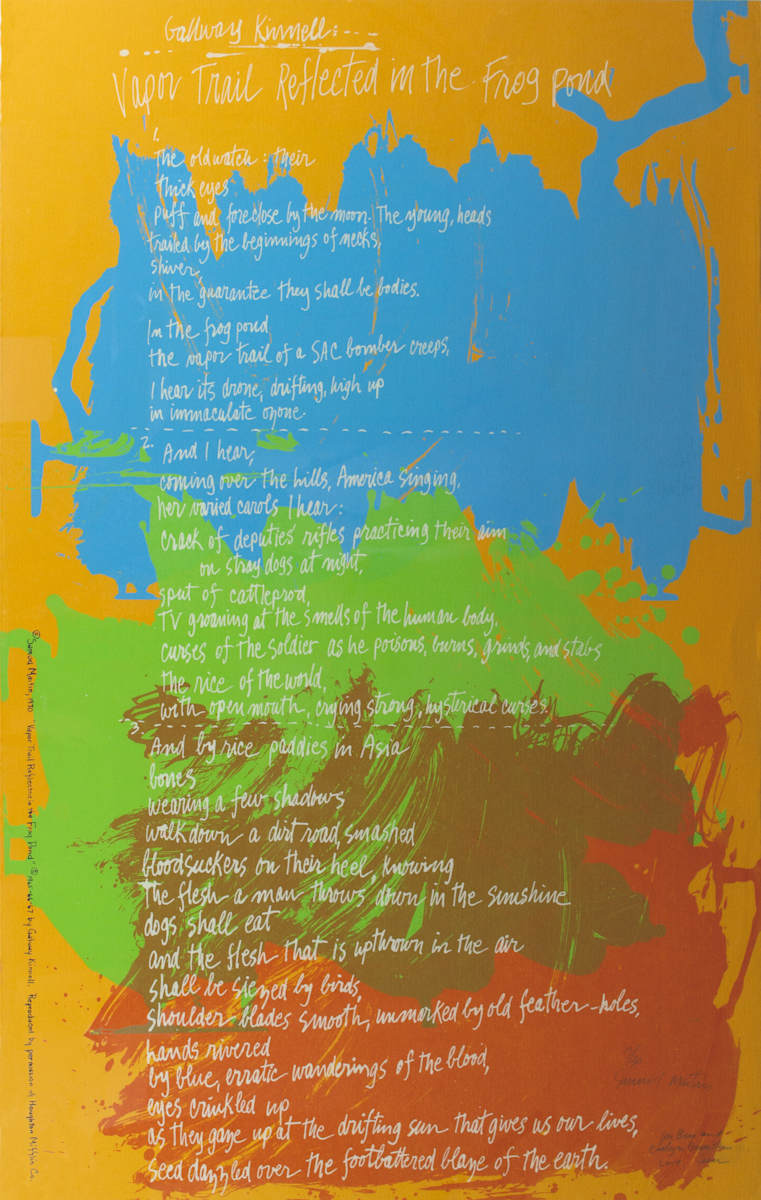 Galway Kinnell:---
Vapor Trail Reflected in the Frog pond
1.
The old watch: their
thick eyes
puff and foreclose by the moon. The young, heads
trailed by the beginnings of necks,
shiver,
in the guarantee they shall be bodies.
In the frog pond
the vapor trail of a SAC bomber creeps,
I hear its drone, drifting, high up
in immaculate ozone.
2.
And I hear,
coming over the hills, America singing,
her varied carols I hear:
crack of deputies rifles practicing their aim
on stray dogs at night,
sput of cattleprod,
TV groaning at the smells of the human body,
curses of the soldier as he poisons, burns, grinds, and stabs
the rice of the world,
with open mouth, crying strong, hysterical curses.
3.
And by rice paddies in Asia
bones
wearing a few shadows
walk down a dirt road, smashed
bloodsuckers on their heel, knowing
The flesh a man throws down in the sunshine
dogs shall eat
and the flesh that is upthrown in the air
shall be siezed by birds,
shoulder blades smooth, unmarked by old feather-holes,
hands rivered
by blue, erratic wanderings of the blood,
eyes crinkled up
as they gaze up at the drifting sun that gives us our lives,
seed dazzled over the footbattered blaze of the earth.
© Samuel Maitin, 1970 "Vapor Trail Reflected in the Frog Pond" © 1965-66-67 by Galway Kinnell. Reproduced by permission of Houghton Mifflin Co.
Samuel Maitin